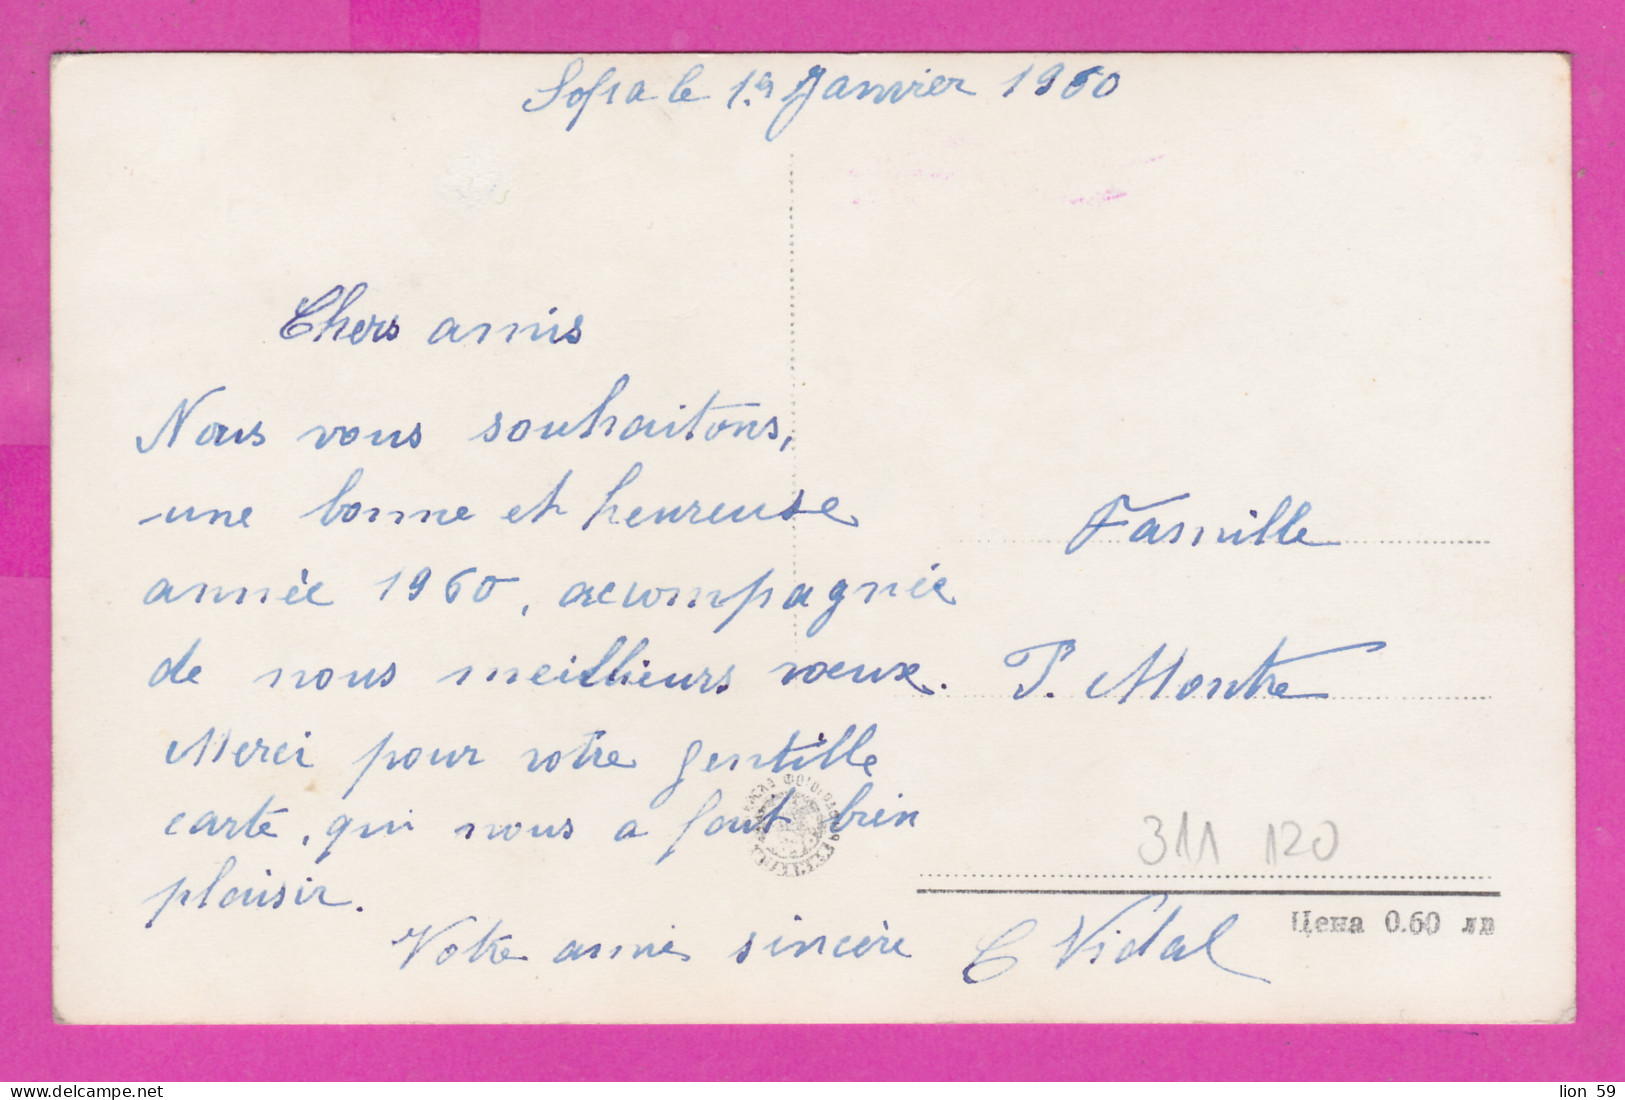 Sofia le 1er Janvier 1960
Chers amis
Nous vous souhaitons,
une bonne et heureuse
année 1960, acompagnée
de nous meilleurs vœux.
Merci pour votre gentille
carte, qui nous a fait bien
plaisir.
Votre amie sincère C Vidal
Famille
P. Montre
311 120
Цена 0.60 лв
lion 59